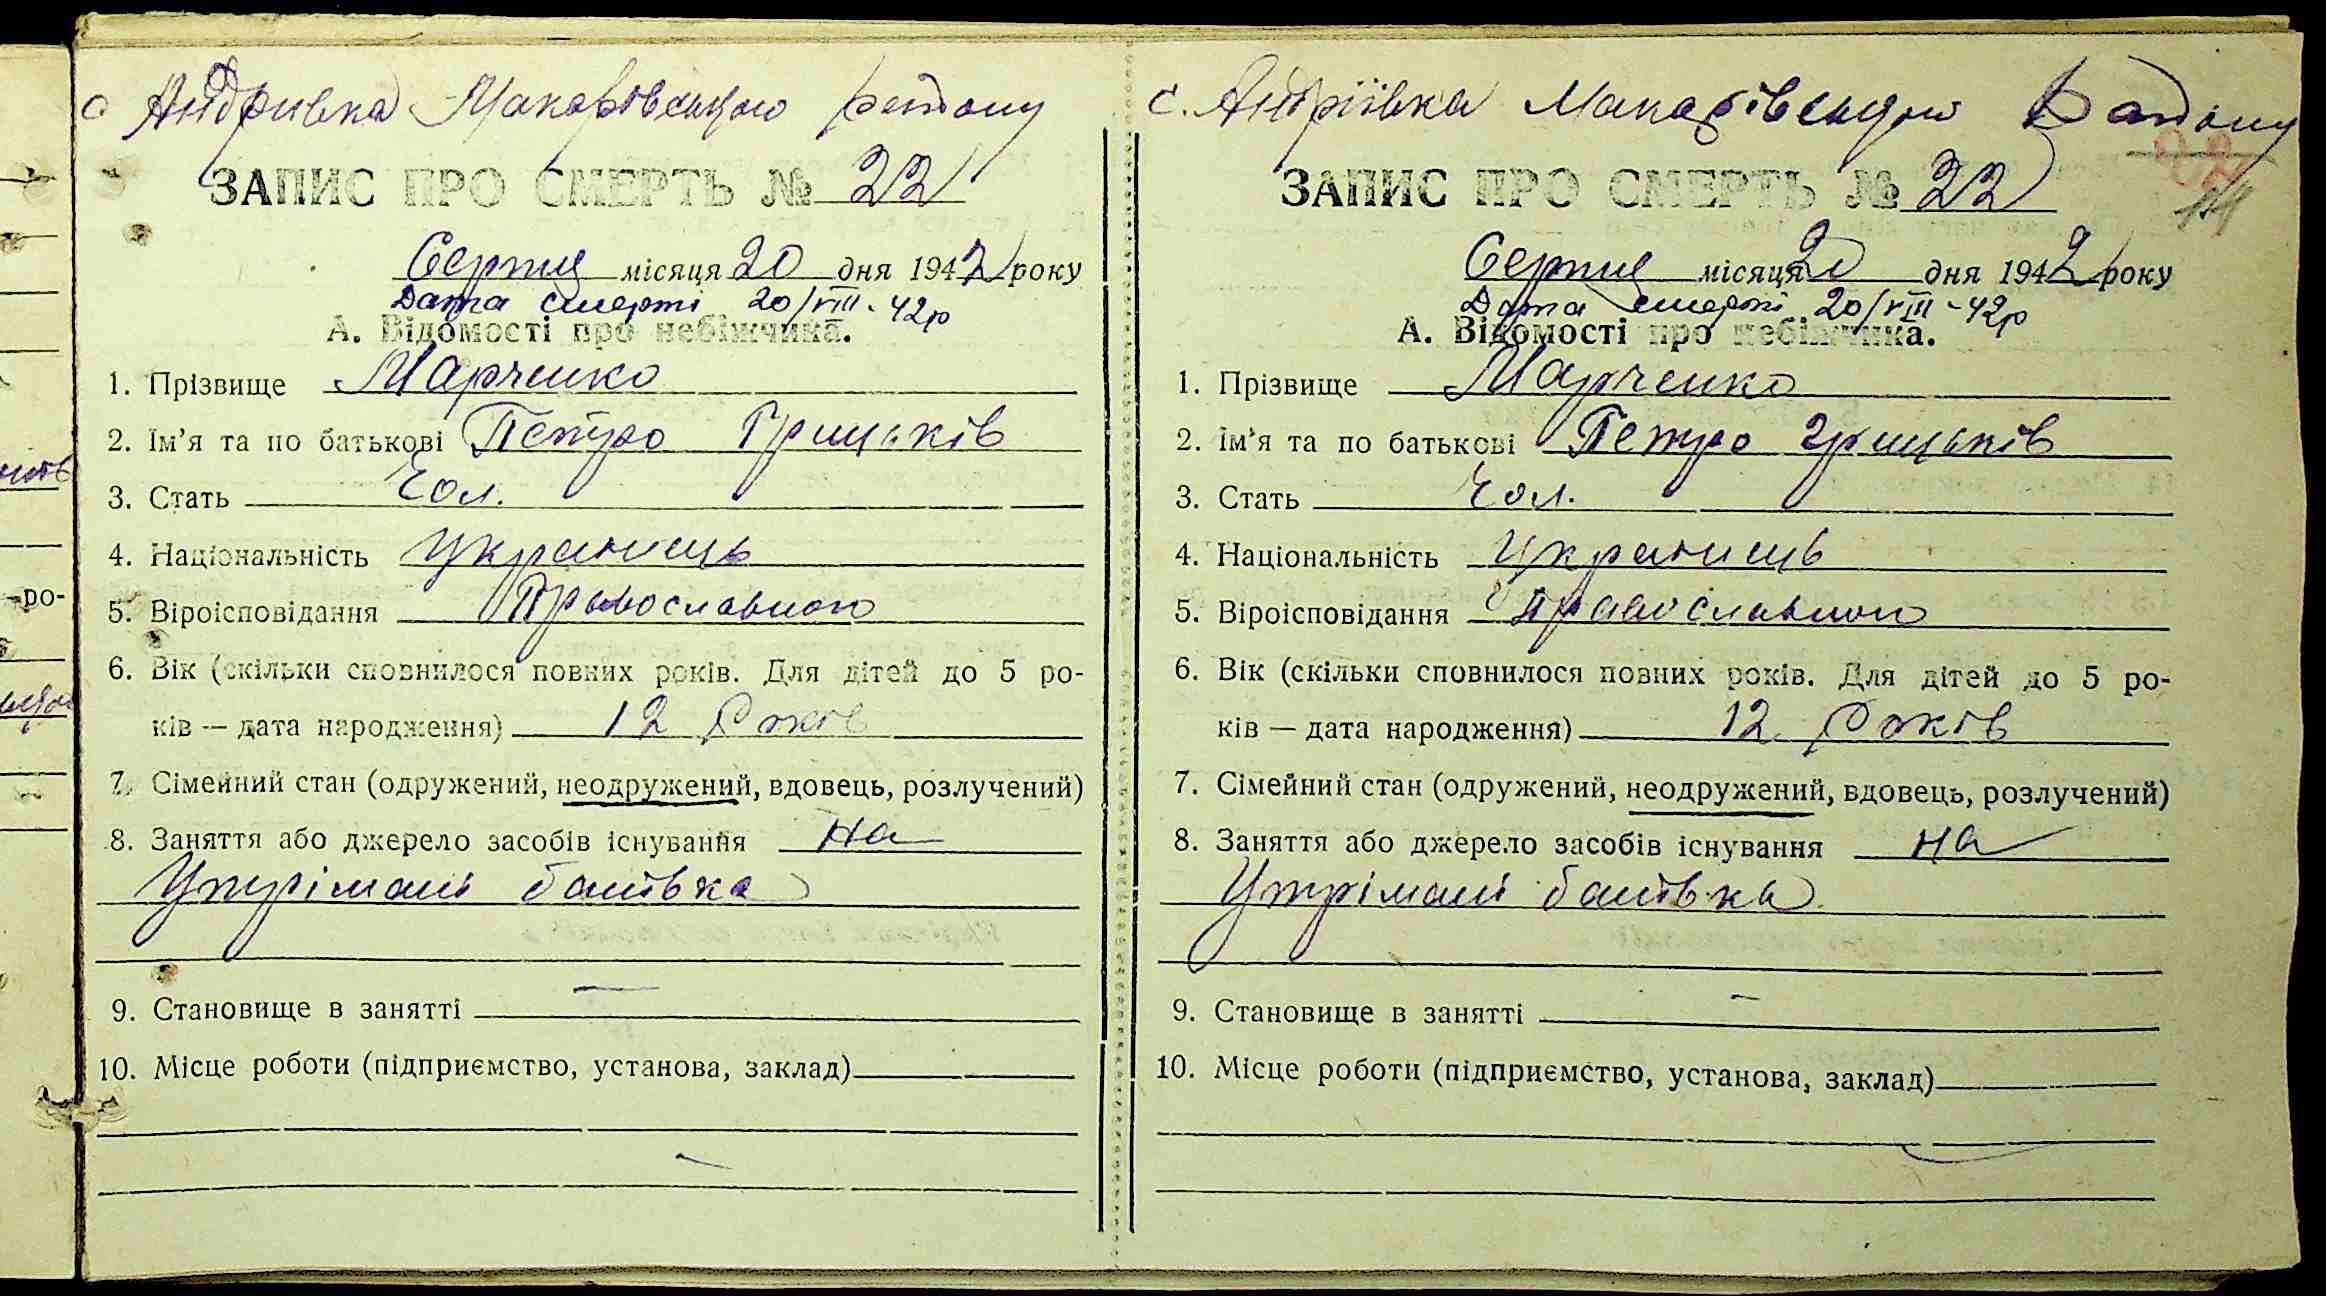 с Андривка Макарівського району
ЗАПИС ПРО СМЕРТЬ № 22
Серпня місяця 20 дня 1942 року
Дата смерті 20/VIII-42р
А. Відомості про небіжчика.
1. Прізвище Марченко
2. Ім'я та по батькові Петро Грицьків
3. Стать Чол.
4. Національність Украинець
5. Віроісповідання Православного
6. Вік (скільки сповнилося повних років. Для дітей до 5 ро-
ків — дата народження) 12 Років
7. Сімейний стан (одружений, неодружений, вдовець, розлучений)
8. Заняття або джерело засобів існування на
Утрімані батька
9. Становище в занятті —
10. Місце роботи (підприємство, установа, заклад)
—
с. Андріївка Макарівського Району
ЗАПИС ПРО СМЕРТЬ № 22
Серпня місяця 20 дня 1942 року
Дата смерті 20/VIII-42р
А. Відомості про небіжчика.
1. Прізвище Марченко
2. Ім'я та по батькові Петро Грицьків
3. Стать Чол.
4. Національність Украинець
5. Віроісповідання Православного
6. Вік (скільки сповнилося повних років. Для дітей до 5 ро-
ків — дата народження) 12 Років
7. Сімейний стан (одружений, неодружений, вдовець, розлучений)
8. Заняття або джерело засобів існування на
Утрімані батька
9. Становище в занятті —
10. Місце роботи (підприємство, установа, заклад)
—